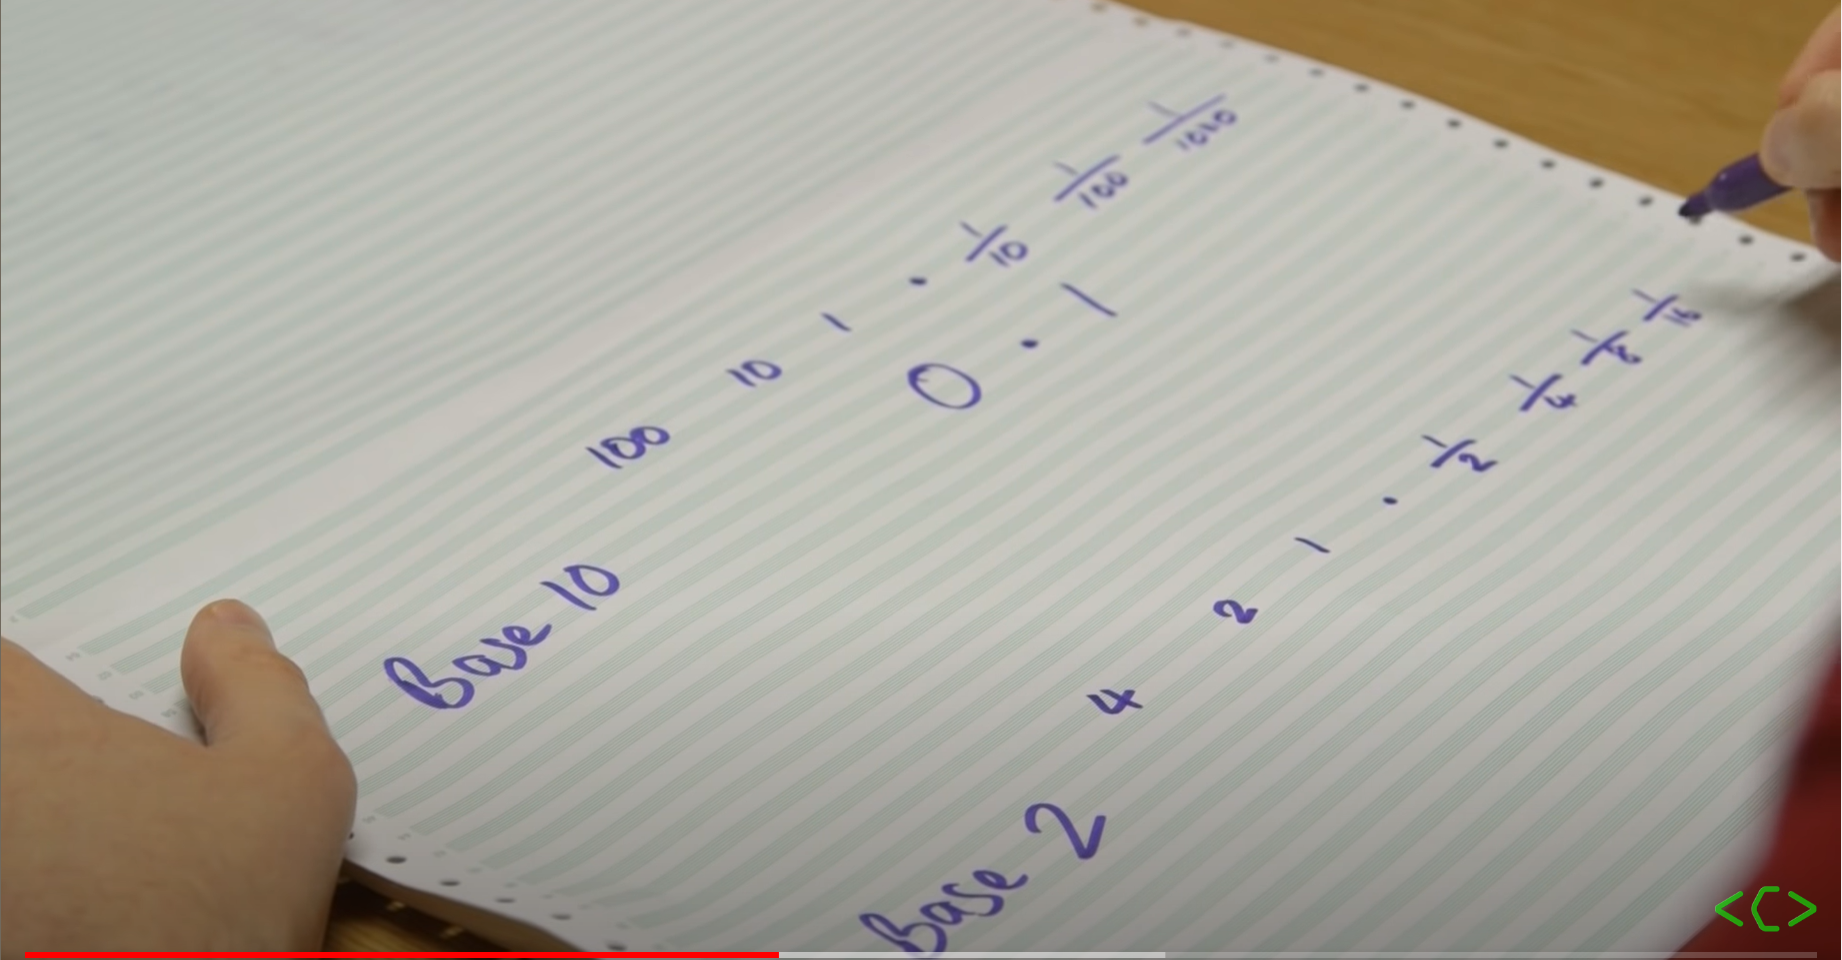 Base 10 100 10 1 . 1/10 1/100 1/1000
0 . 1
Base 2 4 2 1 . 1/2 1/4 1/8 1/16
<C>